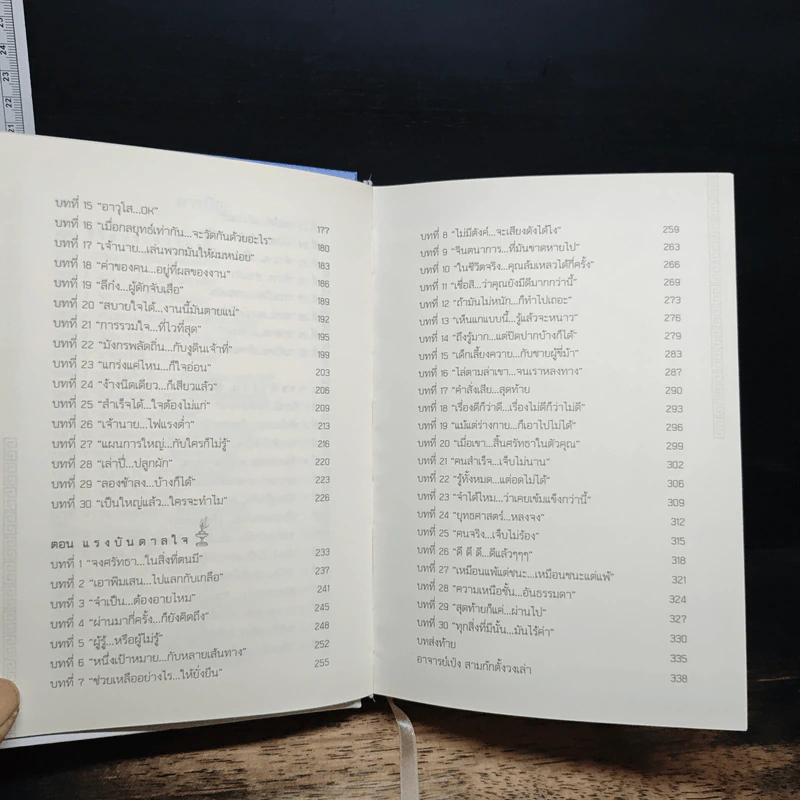 บทที่ 15 "อาวุโส...OK" 177
บทที่ 16 "เมื่อกลยุทธ์เท่ากัน...จะวัดกันด้วยอะไร" 180
บทที่ 17 "เจ้านาย...เล่นพวกมันให้ผมหน่อย" 183
บทที่ 18 "ค่าของคน...อยู่ที่ผลของงาน" 186
บทที่ 19 "ลีก๋ง...ผู้ดักจับเสือ" 189
บทที่ 20 "สบายใจได้...งานนี้มันตายแน่" 192
บทที่ 21 "การรวมใจ...ที่ไวที่สุด" 195
บทที่ 22 "มังกรพลัดถิ่น...กับงูดินเจ้าที่" 199
บทที่ 23 "แกร่งแค่ไหน...ก็ใจอ่อน" 203
บทที่ 24 "ง้างนิดเดียว...ก็เสียวแล้ว" 206
บทที่ 25 "สำเร็จได้...ใจต้องไม่แก่" 209
บทที่ 26 "เจ้านาย...ไฟแรงต่ำ" 213
บทที่ 27 "แผนการใหญ่...กับใครก็ไม่รู้" 216
บทที่ 28 "เล่าปี่...ปลูกผัก" 220
บทที่ 29 "ลองช้าลง...บ้างก็ได้" 223
บทที่ 30 "เป็นใหญ่แล้ว...ใครจะทำไม" 226
ตอน แรงบันดาลใจ
บทที่ 1 "จงศรัทธา...ในสิ่งที่ตนมี" 233
บทที่ 2 "เอาพิมเสน...ไปแลกกับเกลือ" 237
บทที่ 3 "จำเป็น...ต้องอายไหม" 241
บทที่ 4 "ผ่านมากี่ครั้ง...ก็ยังคิดถึง" 245
บทที่ 5 "ผู้รู้...หรือผู้ไม่รู้" 248
บทที่ 6 "หนึ่งเป้าหมาย...กับหลายเส้นทาง" 252
บทที่ 7 "ช่วยเหลืออย่างไร...ให้ยั่งยืน" 255
บทที่ 8 "ไม่มีตังค์...จะเสียงดังได้ไง" 259
บทที่ 9 "จินตนาการ...ที่มันขาดหายไป" 263
บทที่ 10 "ในชีวิตจริง...คุณล้มเหลวได้กี่ครั้ง" 266
บทที่ 11 "เชื่อสิ...ว่าคุณยังมีดีมากกว่านี้" 269
บทที่ 12 "ถ้ามันไม่หนัก...ก็ทำไปเถอะ" 273
บทที่ 13 "เห็นแกแบบนี้...รู้แล้วจะหนาว" 276
บทที่ 14 "ถึงรู้มาก...แต่ปิดปากบ้างก็ได้" 279
บทที่ 15 "เด็กเลี้ยงควาย...กับชายผู้ขี่ม้า" 283
บทที่ 16 "ไล่ตามล่าเขา...จนเราหลงทาง" 287
บทที่ 17 "คำสั่งเสีย...สุดท้าย" 290
บทที่ 18 "เรื่องดีก็ว่าดี...เรื่องไม่ดีก็ว่าไม่ดี" 293
บทที่ 19 "แม้แต่ร่างกาย...ก็เอาไปไม่ได้" 296
บทที่ 20 "เมื่อเขา...สิ้นศรัทธาในตัวคุณ" 299
บทที่ 21 "คนสำเร็จ...เจ็บไม่นาน" 302
บทที่ 22 "รู้ทั้งหมด...แต่อดไม่ได้" 306
บทที่ 23 "จำได้ไหม...ว่าเคยเข้มแข็งกว่านี้" 309
บทที่ 24 "ยุทธศาสตร์...หลงจง" 312
บทที่ 25 "คนจริง...เจ็บไม่ร้อง" 315
บทที่ 26 "ดี ดี ดี...ดีแล้วๆๆๆ" 318
บทที่ 27 "เหมือนแพ้แต่ชนะ...เหมือนชนะแต่แพ้" 321
บทที่ 28 "ความเหนือชั้น...อันธรรมดา" 324
บทที่ 29 "สุดท้ายก็แค่...ผ่านไป" 327
บทที่ 30 "ทุกสิ่งที่มีนั้น...มันไร้ค่า" 330
บทส่งท้าย 335
อาจารย์เป้ง สามก๊กตั้งวงเล่า 338
21
22
23
24
25